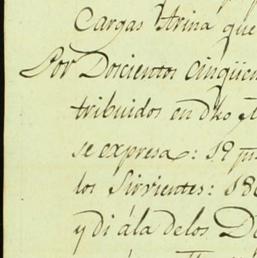 Cargas Arina que
Por Doscientos cinqüen
tribuidos en dho
se expresa: 19
los Sirvientes: 18
y di âla delos D